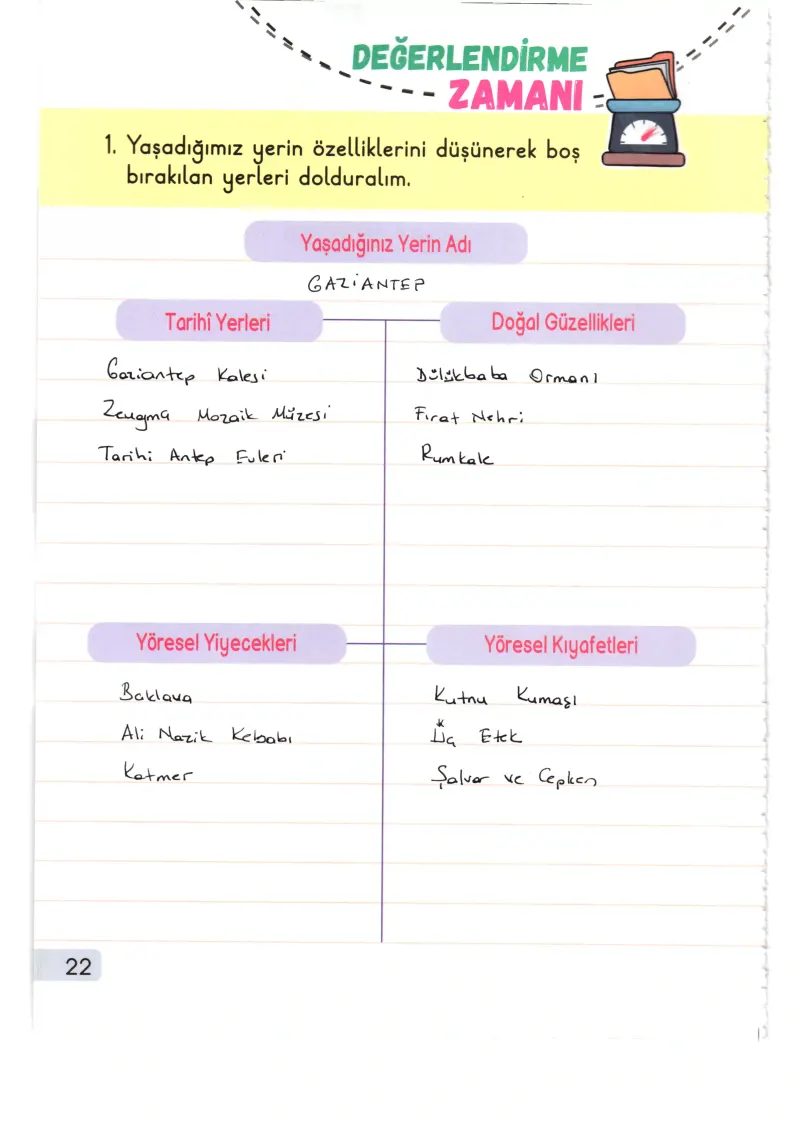 DEĞERLENDİRME
ZAMANI
1. Yaşadığımız yerin özelliklerini düşünerek boş
bırakılan yerleri dolduralım.
Yaşadığınız Yerin Adı
GAZİANTEP
Tarihî Yerleri
Gaziantep Kalesi
Zeugma Mozaik Müzesi
Tarihi Antep Evleri
Doğal Güzellikleri
Dülükbaba Ormanı
Fırat Nehri
Rumkale
Yöresel Yiyecekleri
Baklava
Ali Nazik Kebabı
Katmer
Yöresel Kıyafetleri
Kutnu Kumaşı
Üç Etek
Şalvar ve Cepken
22